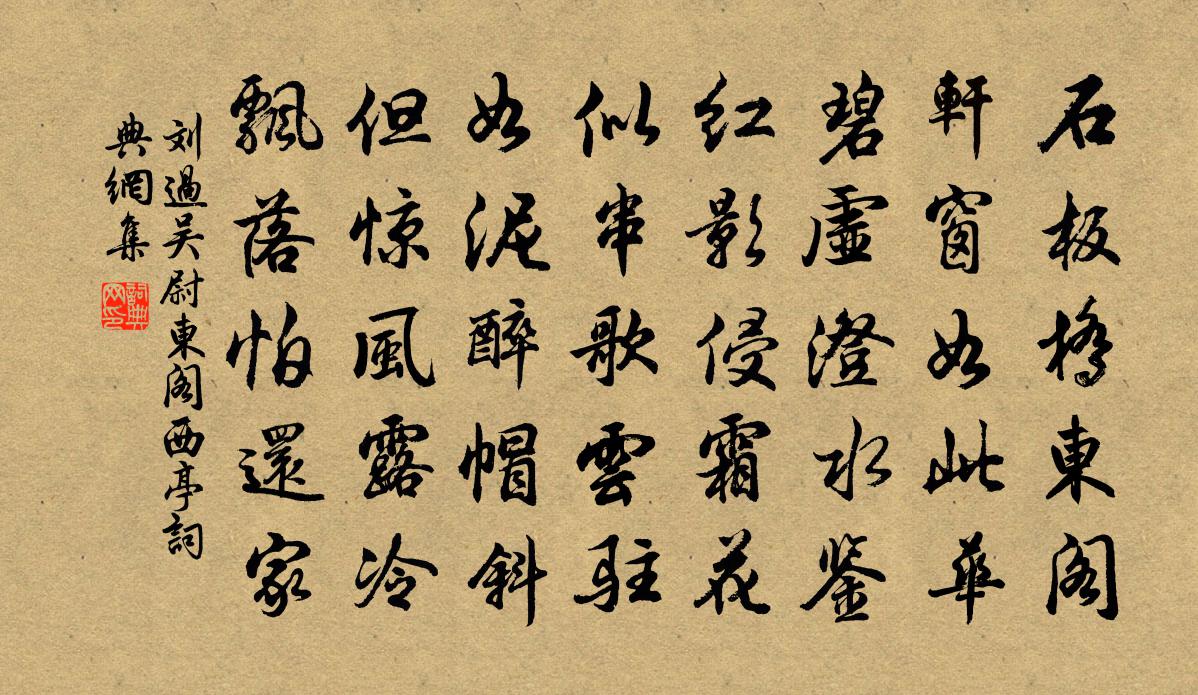 石板橋東閣
軒窗如此華
碧虛澄水鉴
红影侵霜花
似串歌雲駐
如泥醉帽斜
但惊風露冷
飄落怕還家
刘過吴尉東阁西亭詞
典網集
詞典网印